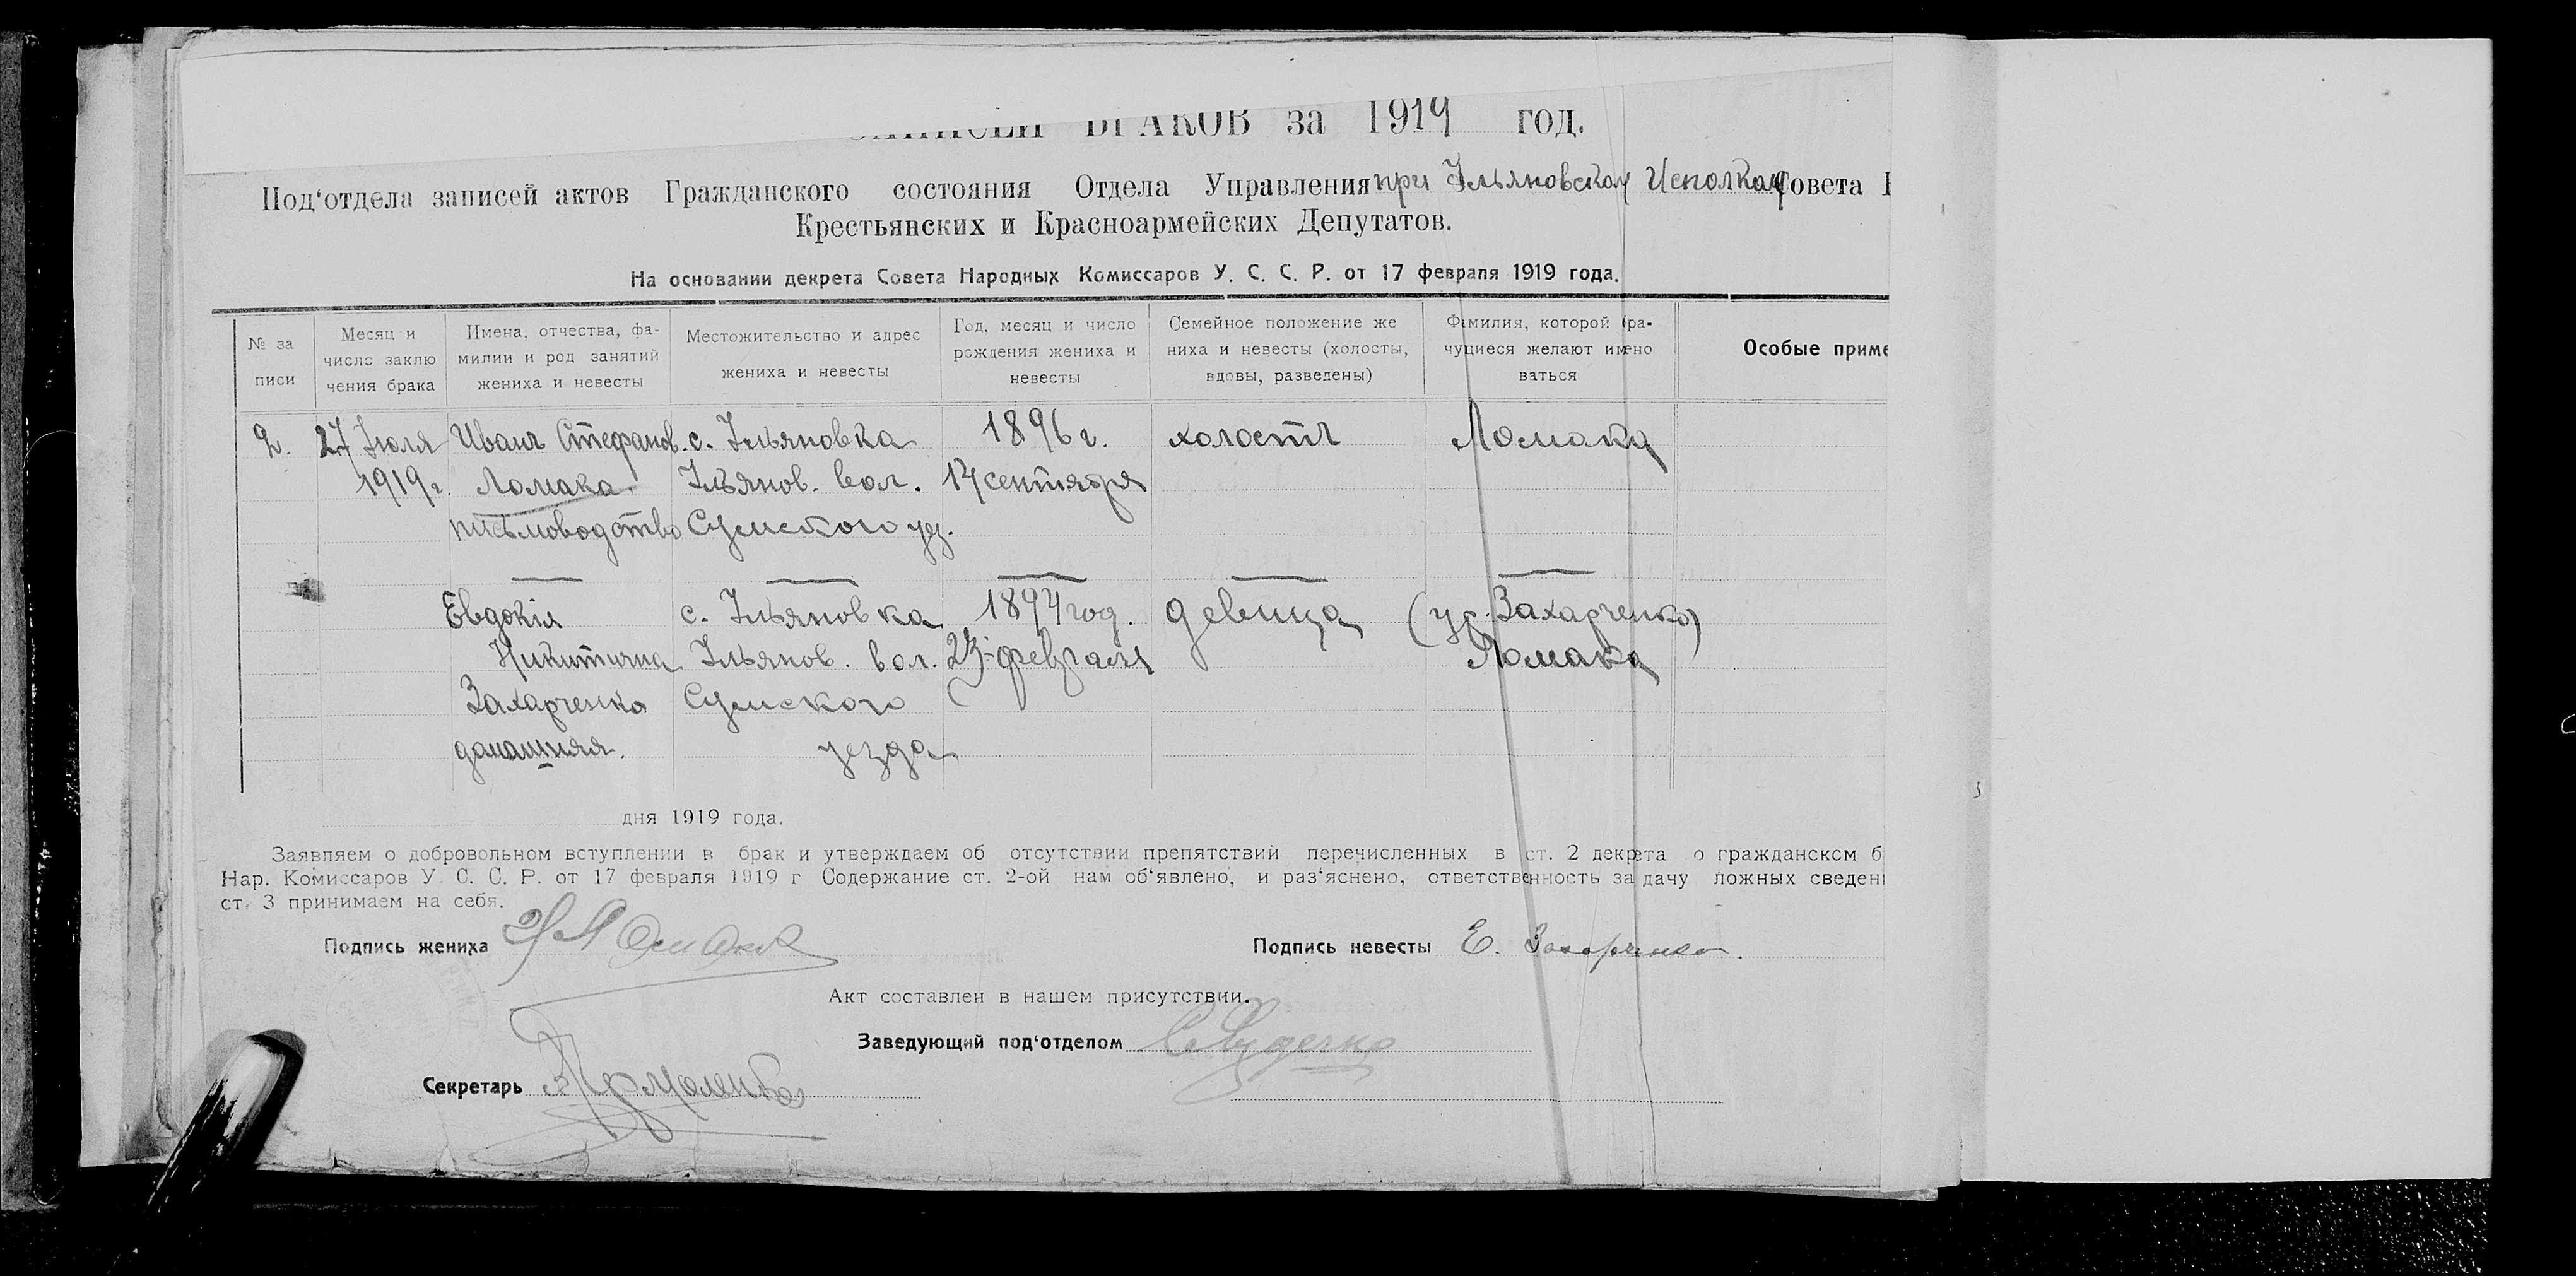 БРАКОВ за 1919 год.
Под‘отдела записей актов Гражданского состояния Отдела Управления при Ильяновском Исполком Совета
Крестьянских и Красноармейских Депутатов.
На основании декрета Совета Народных Комиссаров У. С. С. Р. от 17 февраля 1919 года.
№ за
писи
Месяц и
число заклю
чения брака
Имена, отчества, фа-
милии и род занятий
жениха и невесты
Местожительство и адрес
жениха и невесты
Год, месяц и число
рождения жениха и
невесты
Семейное положение же
ниха и невесты (холосты,
вдовы, разведены)
Фамилия, которой бра-
чущиеся желают имено
ваться
Особые приме
2.
27 Iюля
1919 г.
Иванъ Стефанов.
Ломака
письмоводство
с. Ильяновка
Ильянов. вол.
Сумского уез.
1896 г.
14 сентября
холостъ
Ломака
Евдокiя
Никитична
Захарченко
домашняя.
с. Ильяновка
Ильянов. вол.
Сумского
уезда
1894 год.
февраля
девица
(ур. Захарченко)
Ломака
дня 1919 года.
Заявляем о добровольном вступлении в брак и утверждаем об отсутствии препятствий перечисленных в ст. 2 декрета о гражданском б
Нар. Комиссаров У. С. С. Р. от 17 февраля 1919 г Содержание ст. 2-ой нам об‘явлено, и раз‘яснено, ответственность за дачу ложных сведен
ст. 3 принимаем на себя.
Подпись жениха И Ломака
Подпись невесты Е. Захарченко.
Акт составлен в нашем присутствии.
Заведующий под‘отделом
Секретарь